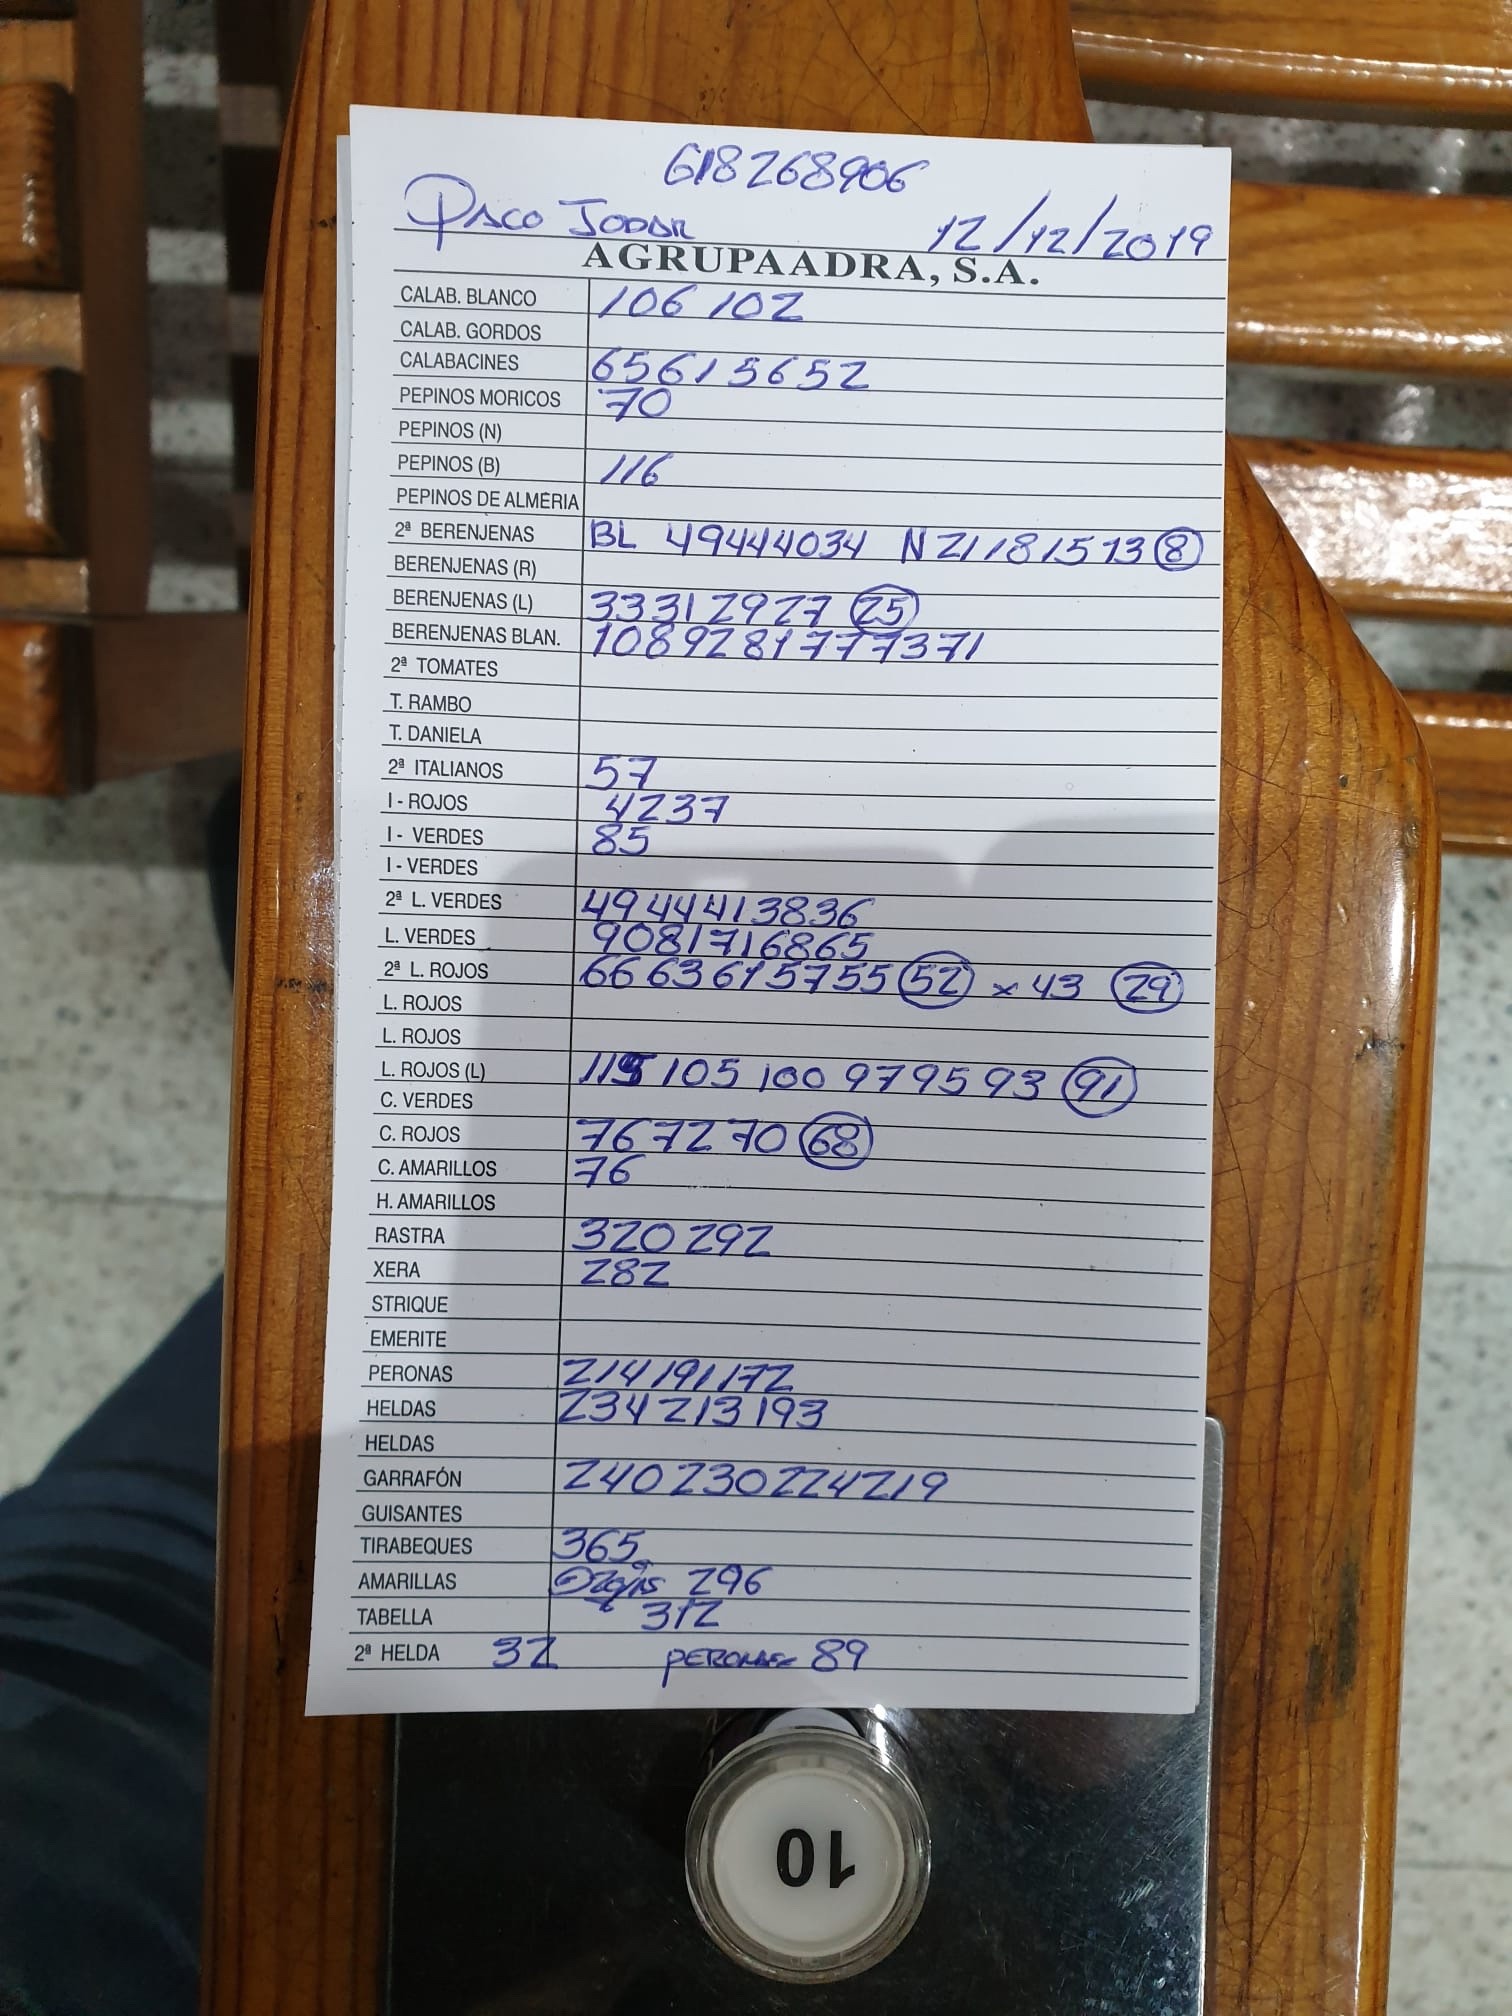 618268906
PACO JODAR 12/12/2019
AGRUPAADRA, S.A.
CALAB. BLANCO 106 102
CALAB. GORDOS
CALABACINES 65 61 56 52
PEPINOS MORICOS 70
PEPINOS (N)
PEPINOS (B) 116
PEPINOS DE ALMERIA
2ª BERENJENAS BL 49 44 40 34 N 21 18 15 13 8
BERENJENAS (R)
BERENJENAS (L) 33 31 29 27 25
BERENJENAS BLAN. 108 92 81 77 73 71
2ª TOMATES
T. RAMBO
T. DANIELA
2ª ITALIANOS 57
I - ROJOS 42 37
I - VERDES 85
I - VERDES
2ª L. VERDES 49 44 41 38 36
L. VERDES 90 81 71 68 65
2ª L. ROJOS 66 63 61 57 55 52 x 43 29
L. ROJOS
L. ROJOS
L. ROJOS (L) 115 105 100 97 95 93 91
C. VERDES
C. ROJOS 76 72 70 68
C. AMARILLOS 76
H. AMARILLOS
RASTRA 320 292
XERA 282
STRIQUE
EMERITE
PERONAS 214 191 172
HELDAS 234 213 193
HELDAS
GARRAFÓN 240 230 224 219
GUISANTES
TIRABEQUES 365
AMARILLAS 296
TABELLA 312
2ª HELDA 32 PERONAS 89
10